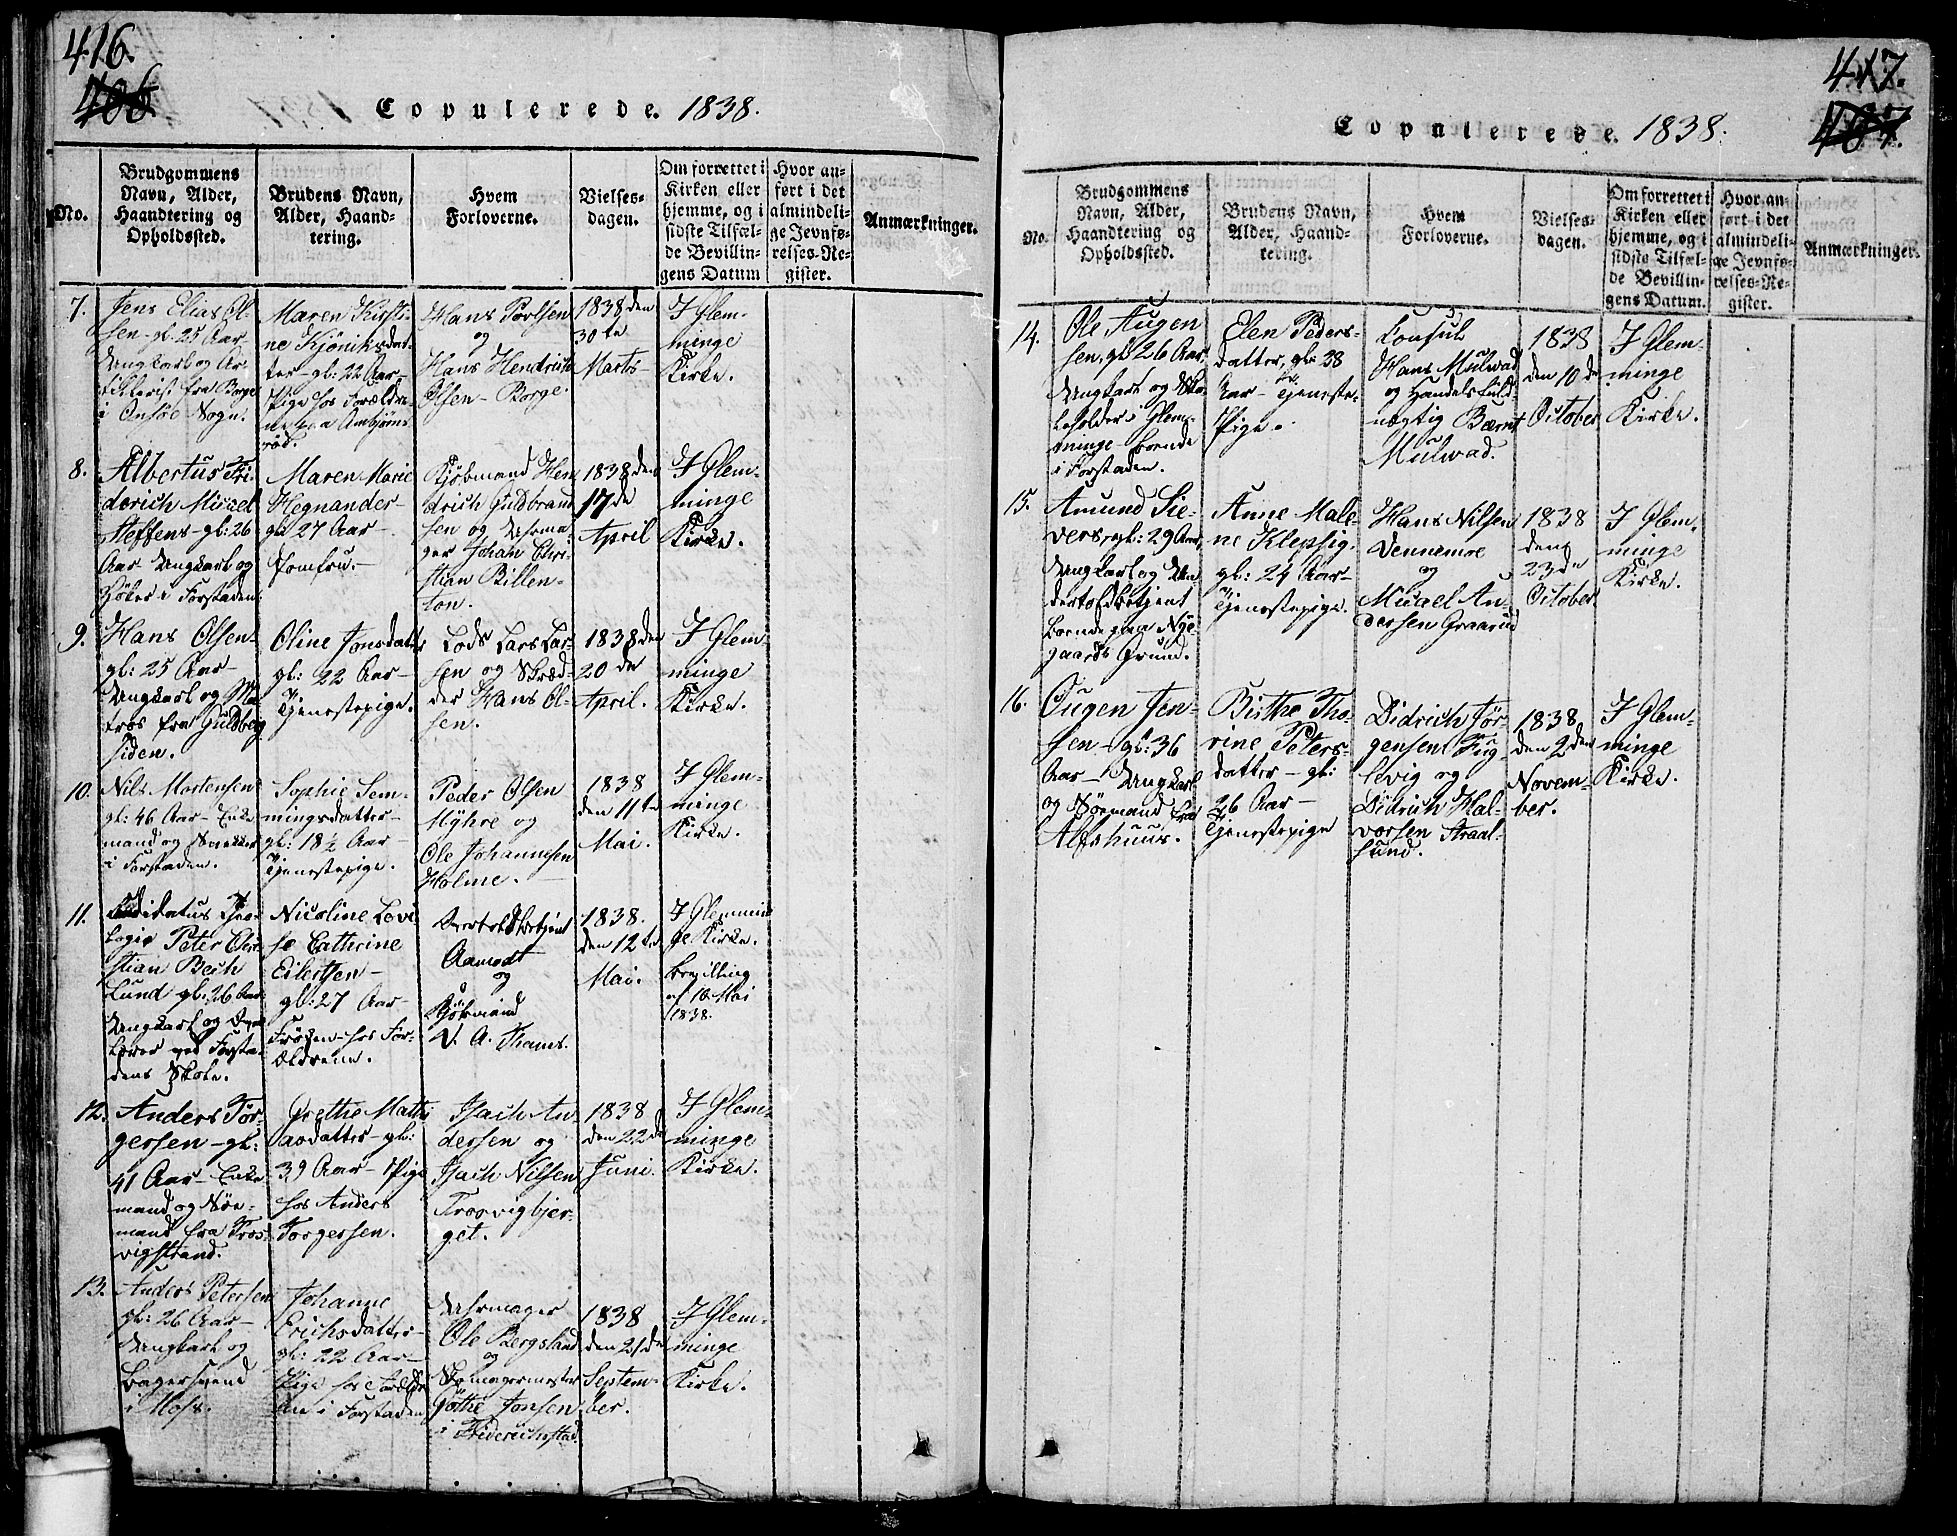 416.
406
Copulerede. 1838.
No.
Brudgommens
Navn, Alder,
Haandtering og
Opholdssted.
Brudens Navn,
Alder, Haand-
tering.
Hvem
Forloverne.
Vielses-
dagen.
Om forrettet i
Kirken eller
hjemme, og i
sidste Tilfæl-
de Bevillin-
gens Datum
Hvor an-
ført i det
almindeli-
ge Jevnfø-
relses-Re-
gister.
Anmærkninger.
7.
Jens Elias Ol-
sen - gl: 25 Aar
Ungkarl og Ar-
tillerist fra Borge
i Onsöe Sogn.
Maren Kirsti-
ne Kjöniksdat-
ter - gl: 22 Aar -
Pige hos Forældre-
ne paa Ambjörns-
röd.
Hans Povlsen
og
Hans Hendrich
Olsen - Borge.
1838 den
30te
Marts -
I Glem-
minge
Kirke.
8.
Albertus Fri-
derich Michael
Steffens - gl: 26
Aar Ungkarl og
Höker i Forstaden.
Maren Marie
Hegnander -
gl: 27 Aar -
Jomfru. -
Kjöbmand Hen-
drich Guldbrand-
sen og Uhrma-
ger Johan Chri-
stian Billen-
ton.
1838 den
17de
April
I Glem-
minge
Kirke.
9.
Hans Olsen -
gl: 25 Aar -
Ungkarl og Ma-
tros fra Guldberg
siden.
Oline Jonsdatter
gl: 22 Aar -
Tjenestepige.
Lods Lars Lar-
sen og Skræd-
der Hans Ol-
sen.
1838 den
20de
April.
I Glem-
minge
Kirke.
10.
Nils Mortensen
gl: 46 Aar - Enke-
mand og Snekker
i Forstaden.
Sophie Sem-
mingsdatter -
gl: 18½ Aar -
Tjenestepige.
Peder Olsen
Myhre og
Ole Johannesen
Holme. -
1838
den 11te
Mai.
I Glem-
minge
Kirke.
11.
Candidatus Theo-
logie Peter Chri-
stian Bech
Lund gl: 26 Aar
Ungkarl og
Lærer ved Forsta-
dens Skole.
Nicoline Lovi-
se Cathrine
Eilertsen -
gl: 27 Aar -
Fröken - hos For-
ældrene.
Overtoldbetjent
Aamodt
og
Kjöbmand
V. A. Thams.
1838.
den 12te
Mai.
I Glemmin-
ge Kirke.
Bevilling
af 10 Mai
1838.
12.
Anders Tor-
gersen - gl:
41 Aar - Enke-
mand og Söe-
mand fra Tros-
vigstrand.
Grethe Mathi-
asdatter - gl:
39 Aar - Pige
hos Anders
Torgersen.
Isach An-
dersen og
Isach Nilsen
Trosvigbjer-
get.
1838
den 22de
Juni.
I Glem-
minge
Kirke.
13.
Anders Petersen
gl: 26 Aar -
Ungkarl og
Bagersvend
i Moss.
Johanne
Erichsdatter -
gl: 22 Aar -
Pige hos Foræld-
rene i Forstaden
Uhrmager
Ole Bergsland
og
Skomagermester
Göthe Jonsen
i Friderichsstad
1838
den 21de
Septem-
ber.
I Glem-
minge
Kirke.
417.
407.
Copulerede. 1838.
No.
Brudgommens
Navn, Alder,
Haandtering og
Opholdssted.
Brudens Navn,
Alder, Haand-
tering.
Hvem
Forloverne.
Vielses-
dagen.
Om forrettet i
Kirken eller
hjemme, og i
sidste Tilfæl-
de Bevillin-
gens Datum.
Hvor an-
ført i det
almindeli-
ge Jevnfø-
relses-Re-
gister.
Anmærkninger.
14.
Ole Augen-
sen, gl: 26 Aar,
Ungkarl og Sko-
leholder i Glem-
minge - boende
i Forstaden.
Elen Peders-
datter, gl: 38
Aar - Tjeneste-
Pige.
Consul
Hans Mulvad
og Handelsfuld-
mægtig Bærnt
Mulwad.
1838
den 10de
October
I Glem-
minge
Kirke.
15.
Amund Sie-
vers, gl: 29 Aar,
Ungkarl og Un-
dertoldbetjent
boende paa Nye-
gaards Grund.
Anne Male-
ne Klepsig.
gl: 24 Aar -
Tjenestepige.
Hans Nilsen
Vennemoe
og
Micael An-
dersen Graarud
1838
den
23de
October
I Glem-
minge
Kirke.
16.
Ougen Jen-
sen - gl: 36
Aar - Ungkarl
og Söemand fra
Alfshuus.
Birthe Tho-
rine Peters-
datter - gl:
26 Aar -
Tjenestepige
Didrich Jör-
gensen Fug-
levig og
Didrich Hal-
vorsen Straal-
sund.
1838
den 2den
Novem-
ber.
I Glem-
minge
Kirke.